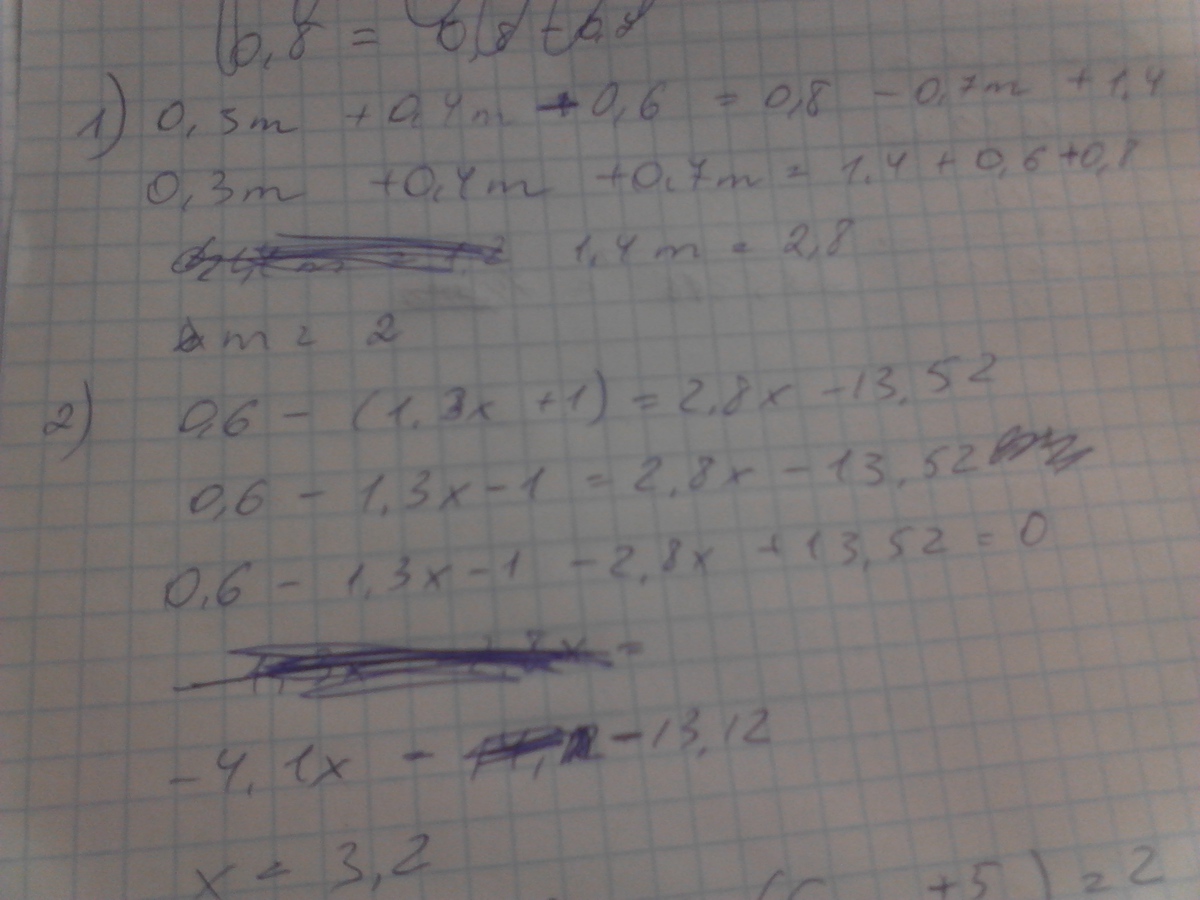 0,8 = 0,8 + 0,8
1) 0,3m + 0,4m + 0,6 = 0,8 - 0,7m + 1,4
0,3m + 0,4m + 0,7m = 1,4 + 0,6 + 0,8
1,4m = 2,8
m = 2
2) 0,6 - (1,3x + 1) = 2,8x - 13,52
0,6 - 1,3x - 1 = 2,8x - 13,52
0,6 - 1,3x - 1 - 2,8x + 13,52 = 0
-4,1x = -13,12
x = 3,2
+5) = 2